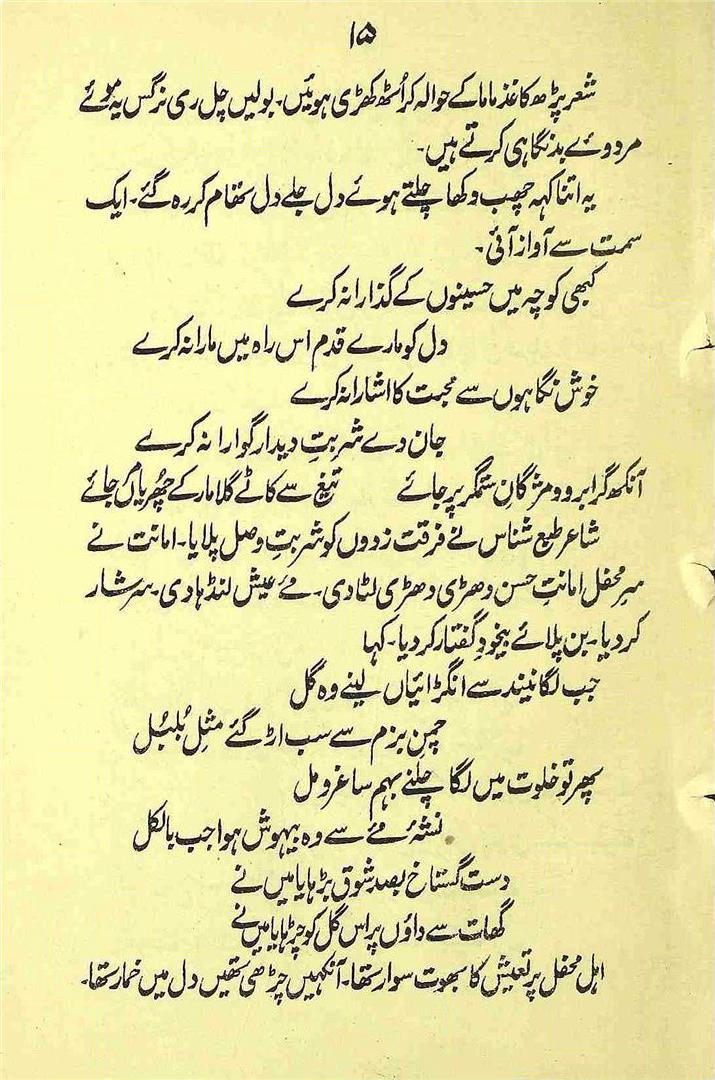 ۱۵
شعر پڑھ کاغذ ماما کے حوالہ کر اُٹھ کھڑی ہوئیں۔ بولیں چل ری نرگس یہ موئے
مردوے بدنگاہی کرتے ہیں۔
یہ اتنا کہہ چھب دکھا چلتے ہوئے دل جلے دل تھام کر رہ گئے۔ ایک
سمت سے آواز آئی۔
کبھی کوچہ میں حسینوں کے گذارا نہ کرے
دل کو مارے قدم اس راہ میں مارا نہ کرے
خوش نگاہوں سے محبت کا اشارا نہ کرے
جان دے شربتِ دیدار گوارا نہ کرے
آنکھ گر ابرو و مژگانِ ستمگر پر جائے تیغ سے کاٹے گلا مار کے چھریاں مر جائے
شاعر طبع شناس نے فرقت زدوں کو شربتِ وصل پلایا۔ امانت نے
سرِ محفل امانتِ حسن دھڑی دھڑی لٹا دی۔ مے عیش لنڈہا دی۔ سرشار
کر دیا۔ بن پلائے بیخودِ گفتار کر دیا۔ کہا
جب لگا نیند سے انگڑائیاں لینے وہ گل
چمنِ بزم سے سب اڑ گئے مثلِ بُلبُل
پھر تو خلوت میں لگا چلنے بہم ساغر و مل
نشۂ مے سے وہ بیہوش ہوا جب بالکل
دست گستاخ بصد شوق بڑہایا میں نے
گھات سے داؤں پر اس گل کو چڑہایا میں نے
اہل محفل پر تعیش کا بھوت سوار تھا۔ آنکہیں چڑھی تھیں دل میں خمار تھا۔